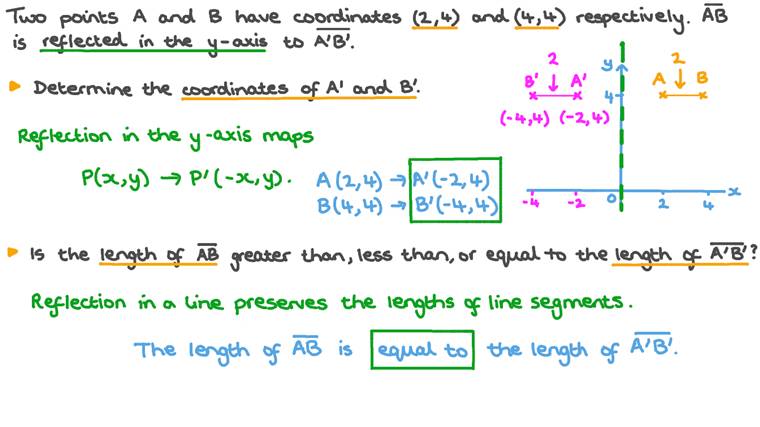 Two points A and B have coordinates (2,4) and (4,4) respectively. A̅B̅
is reflected in the y-axis to A̅'B̅'.
▸ Determine the coordinates of A' and B'.
Reflection in the y-axis maps
P(x,y) → P'(-x,y).
A(2,4) → A'(-2,4)
B(4,4) → B'(-4,4)
2 y 2
B' ↓ A' A ↓ B
4
(-4,4) (-2,4)
-4 -2 0 2 4 x
▸ Is the length of A̅B̅ greater than, less than, or equal to the length of A̅'B̅'?
Reflection in a line preserves the lengths of line segments.
The length of A̅B̅ is equal to the length of A̅'B̅'.